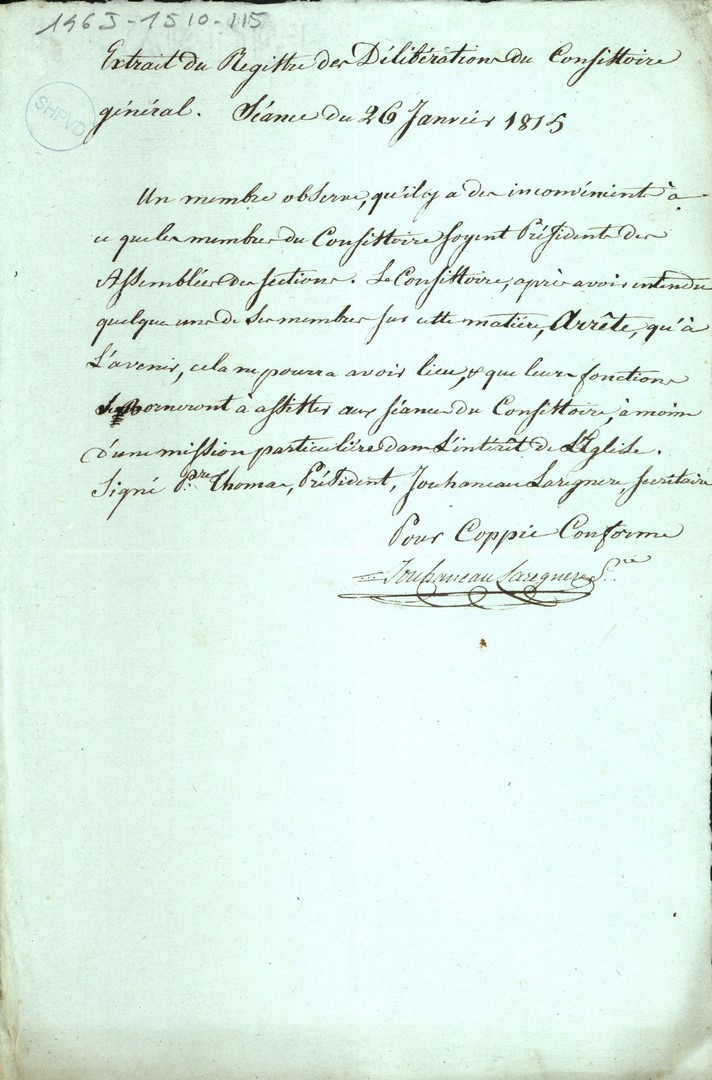 196J-1510-115
SHPVD
Extrait du Registre des Délibérations du Consistoire
général. Séance du 26 Janvier 1815
Un membre observe, qu'il y a des inconvénients à
ce que les membres du Consistoire soyent Présidents des
Assemblées des sections. Le Consistoire, après avoir entendu
quelque uns de ses membres sur cette matière, Arrête, qu'à
L'avenir, cela ne pourra avoir lieu, & que leurs fonctions
se Borneront à assister aux séances du Consistoire, à moins
d'une mission particulière dans L'intérêt de L'Eglise.
Signé P.re Thomas, Président, Jouhaneau Laregnere, secrétaire
Pour Coppie Conforme
Jouhaneau Laregnere S.re